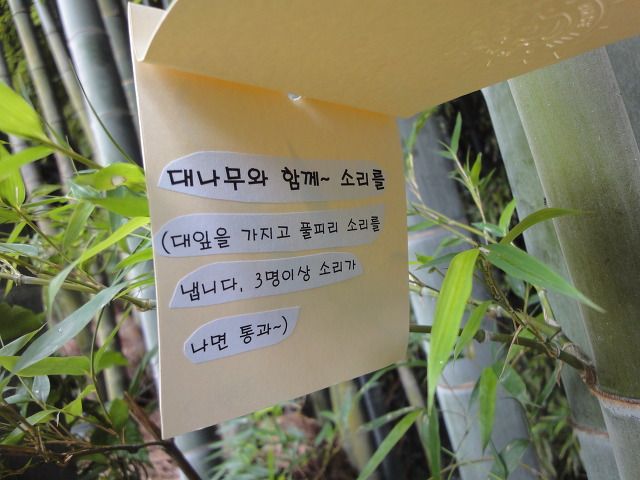 대나무와 함께~ 소리를
(대잎을 가지고 풀피리 소리를
냅니다. 3명이상 소리가
나면 통과~)